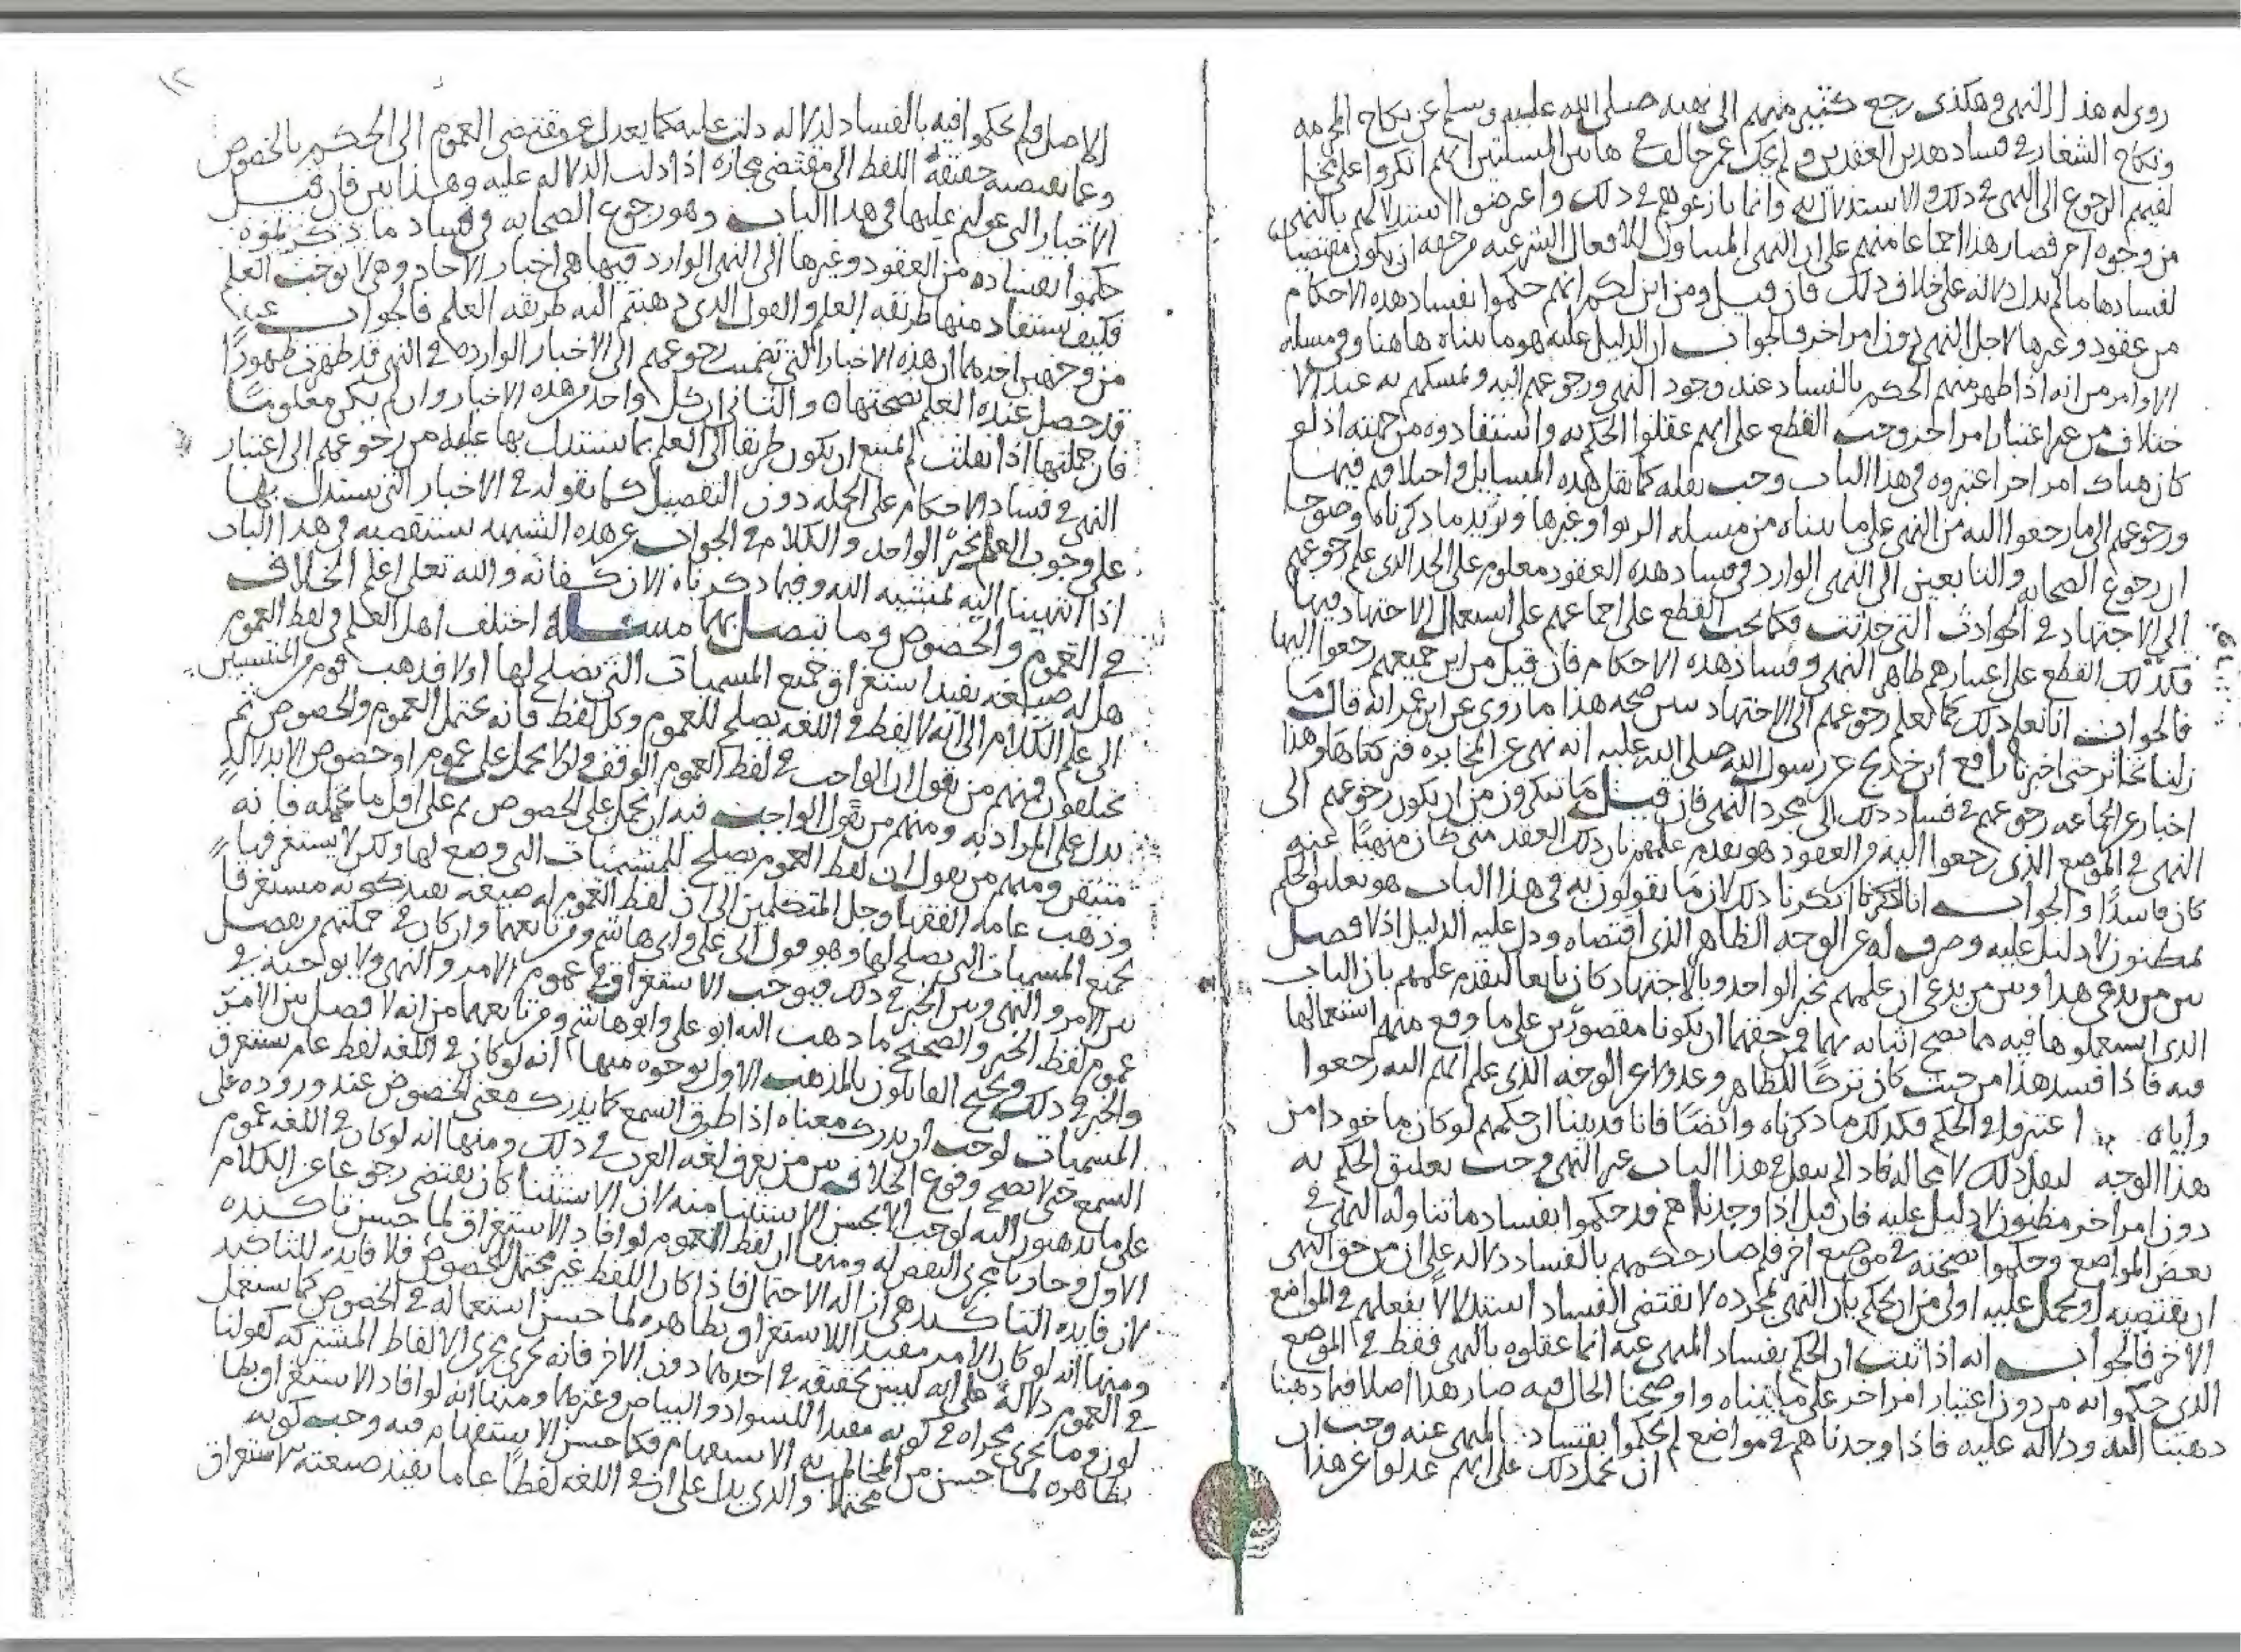 روى له هذا النهى وهكذى رجع كثير منهم الى نهيه صلى الله عليه وسلم عن نكاح المحرمه
ونكاح الشغار فى فساد هذين العقدين ولم يحك عمن خالف فى هاتين المسلتين انهم انكروا على
لفيهم الرجوع الى النهى فى ذلك والاستدلال به وانما نازعوهم فى ذلك واعرضوا استدلالهم بالنهى
من وجوه اخر فصار هذا اجماعا منهم على ان النهى المتناول للافعال الشرعيه من حقه ان يكون مقتضيا
لفسادها ما لم يدل دلاله على خلاف ذلك فان قيل ومن اين لكم انهم حكموا بفساد هذه الاحكام
من عقود وغيرها لاجل النهى دون امر اخر فالجواب ان الدليل عليه هو ما بيناه هاهنا وفى مسله
الاوامر من انه اذا ظهر منهم الحكم بالفساد عند وجود النهى ورجوعهم اليه وتمسكهم به عند الا
ختلاف من غير اعتبار امر اخر وجب القطع على انهم عقلوا الحكم به واستفادوه من جهته اذ لو
كان هناك امر اخر اعتبروه فى هذا الباب وجب نقله كما نقل هذه المسايل واختلافهم فيها
ورجوعهم الى ما رجعوا اليه من النهى على ما بيناه من مسله الربوا وغيرها ونزيد ما ذكرناه وضوحا
ان رجوع الصحابه والتابعين الى النهى الوارد فى فساد هذه العقود معلوم على الحد الذى علم رجوعهم
الى الاجتهاد فى الحوادث التى حدثت فكما يجب القطع على اجماعهم على استعمال الاجتهاد فيها
فكذلك القطع على اعتبارهم ظاهر النهى وفساد هذه الاحكام فان قيل من اين جميعهم رجعوا اليها
فالجواب انا نعلم ذلك كما نعلم رجوعهم الى الاجتهاد يبين صحه هذا ما روى عن ابن عمر انه قال ما
زلنا نخابر حتى اخبرنا رافع ابن خديج عن رسول الله صلى الله عليه انه نهى عن المخابره فتركناها وهذا
اخبار عن الجماعه رجوعهم فى فساد ذلك الى مجرد النهى فان قيل ما تنكرون من ان يكون رجوعهم الى
النهى فى الموضع الذى رجعوا اليه فى العقود هو تقدم علمهم بان ذلك العقد متى كان منهيا عنه
كان فاسدا والجواب انا انكرنا ذلك لان ما يقولون به فى هذا الباب هو تعليق الحكم
بمظنون لا دليل عليه وصرف له عن الوجه الظاهر الذى اقتضاه ودل عليه الدليل اذ لا فصل
بين من يدعى هذا وبين من يدعى ان علمهم بخبر الواحد وبالاجتهاد كان تابعا لتقدم علمهم بان الباب
الذى استعملوها فيه مما يصح اثباته بهما فمن حقهما ان يكونا مقصورين على ما وقع منهم استعمالها
فيه فاذا فسد هذا من حيث كان تركا للظاهر وعدولا عن الوجه الذى علم انهم اليه رجعوا
واياه اعتبروا فى الحكم فكذلك ما ذكرناه وايضا فانا قد بينا ان حكمهم لو كان ماخوذا من
هذا الوجه لنقل ذلك لا محاله فاذا لم ينقل فى هذا الباب غير النهى وجب تعليق الحكم به
دون امر اخر مظنون لا دليل عليه فان قيل اذا وجدناهم قد حكموا بفساد ما تناوله النهى فى
بعض المواضع وحكموا بصحته فى موضع اخر فلم صار حكمهم بالفساد دلاله على ان من حق النهى
ان يقتضيه او يحمل عليه اولى من ان يحكم بان النهى بمجرده لا يقتضى الفساد استدلالا بفعلهم فى المواضع
الاخر فالجواب انه اذا ثبت ان الحكم بفساد المنهى عنه انما عقلوه بالنهى فقط فى الموضع
الذى حكموا به من دون اعتبار امر اخر على ما بيناه واوضحنا الحال فيه صار هذا اصلا فيما ذهبنا
ذهبنا اليه ودلاله عليه فاذا وجدناهم فى مواضع لم يحكموا بفساد المنهى عنه وجب ان
ان نحمل ذلك على انهم عدلوا عن هذا
١٢
الاصل فلم يحكموا فيه بالفساد لدلاله دلت عليه كما يعدل عن مقتضى العموم الى الحكم بالخصوص
وعما تقتضيه حقيقة اللفظ الى مقتضى مجازه اذا دلت الدلاله عليه وهذا بين فان قيل
الاخبار التى عولتم عليها فى هذا الباب وهو رجوع الصحابه فى فساد ما ذكرتموه
حكموا بفساده من العقود وغيرها الى النهى الوارد فيها هى اخبار الاحاد وهى لا توجب العلم
فكيف يستفاد منها طريقه العلم والقول الذى ذهبتم اليه طريقه العلم فالجواب عنه
من وجهين احدهما ان هذه الاخبار التى تضمنت رجوعهم الى الاخبار الوارده فى النهى قد ظهرت ظهورا
قد حصل عنده العلم بصحتها ه والثانى ان كل واحد من هذه الاخبار وان لم يكن معلوما
فان جملتها اذا نقلت لم يمتنع ان يكون طريقا الى العلم بما يستدل بها عليه من رجوعهم الى اعتبار
النهى فى فساد الاحكام على الجمله دون التفصيل كما نقوله فى الاخبار التى يستدل بها
على وجوب العلم بخبر الواحد والكلام فى الجواب عن هذه الشبهه سنستقصيه فى هذا الباب
اذا انتهينا اليه بمشيه الله وفيما ذكرناه الان كفايه والله تعالى اعلم الخلاف
فى العموم والخصوص وما يتصل بهما مسئله اختلف اهل العلم فى لفظ العموم
هل له صيغه تفيد استغراق جميع المسميات التى تصلح لها اولا فذهب قوم من المنتسبين
الى علم الكلام الى انه لا لفظ فى اللغه يصلح للعموم وكل لفظ فانه يحتمل العموم والخصوص ثم
يختلفون فمنهم من يقول ان الواجب فى لفظ العموم الوقف ولا يحمل على عموم او خصوص الا بدلاله
تدل على المراد به ومنهم من يقول الواجب فيه ان يحمل على الخصوص ثم على اقل ما يحتمله فانه
متيقن ومنهم من يقول ان لفظ العموم يصلح للمسميات التى وضع لها ولكن لا يستغرقها
وذهب عامه الفقها وجل المتكلمين الى ان لفظ العموم له صيغه تفيد كونه مستغرقا
لجميع المسميات التى يصلح لها وهو قول ابى على وابى هاشم ومن تابعهما وان كان فى جملتهم من يفصل
بين الامر والنهى وبين الخبر فى ذلك فيوجب الاستغراق فى عموم الامر والنهى ولا يوجبه فى
عموم لفظ الخبر والصحيح ما ذهب اليه ابو على وابو هاشم ومن تابعهما من انه لا فصل بين الامر
والخبر فى ذلك ويحتج القائلون بالمذهب الاول بوجوه منها انه لو كان فى اللغه لفظ عام يستغرق
المسميات لوجب ان يدرك معناه اذا طرق السمع كما يدرك معنى الخصوص عند وروده على
السمع حتى لا يصح وقوع الخلاف بين من يعرف لغه العرب فى ذلك ومنها انه لو كان فى اللغه عموم
على ما تذهبون اليه لوجب الا يحسن الاستثنا منه لان الاستثنا كان يقتضى رجوعا عن الكلام
الاول وجاريا مجرى النقض له ومنها ان لفظ العموم لو افاد الاستغراق لما حسن تاكيده
لان فايده التاكيد هى ازاله الاحتمال فاذا كان اللفظ غير محتمل للخصوص فلا فايده للتاكيد
ومنها انه لو كان الامر مفيدا للاستغراق بظاهره لما حسن استعماله فى الخصوص كما يستعمل
فى العموم دلالة على انه ليس بحقيقه فى احدهما دون الاخر فانه يجرى مجرى الالفاظ المشتركه كقولنا
لون وما يجرى مجراه فى كونه مفيدا للسواد والبياض وغيرهما ومنها انه لو افاد الاستغراق بظا
بظاهره لما حسن من المخاطب به الاستفهام فكما حسن الاستفهام فيه وجب كونه
محتملا والذى يدل على ان فى اللغه لفظا عاما تفيد صيغته الاستغراق